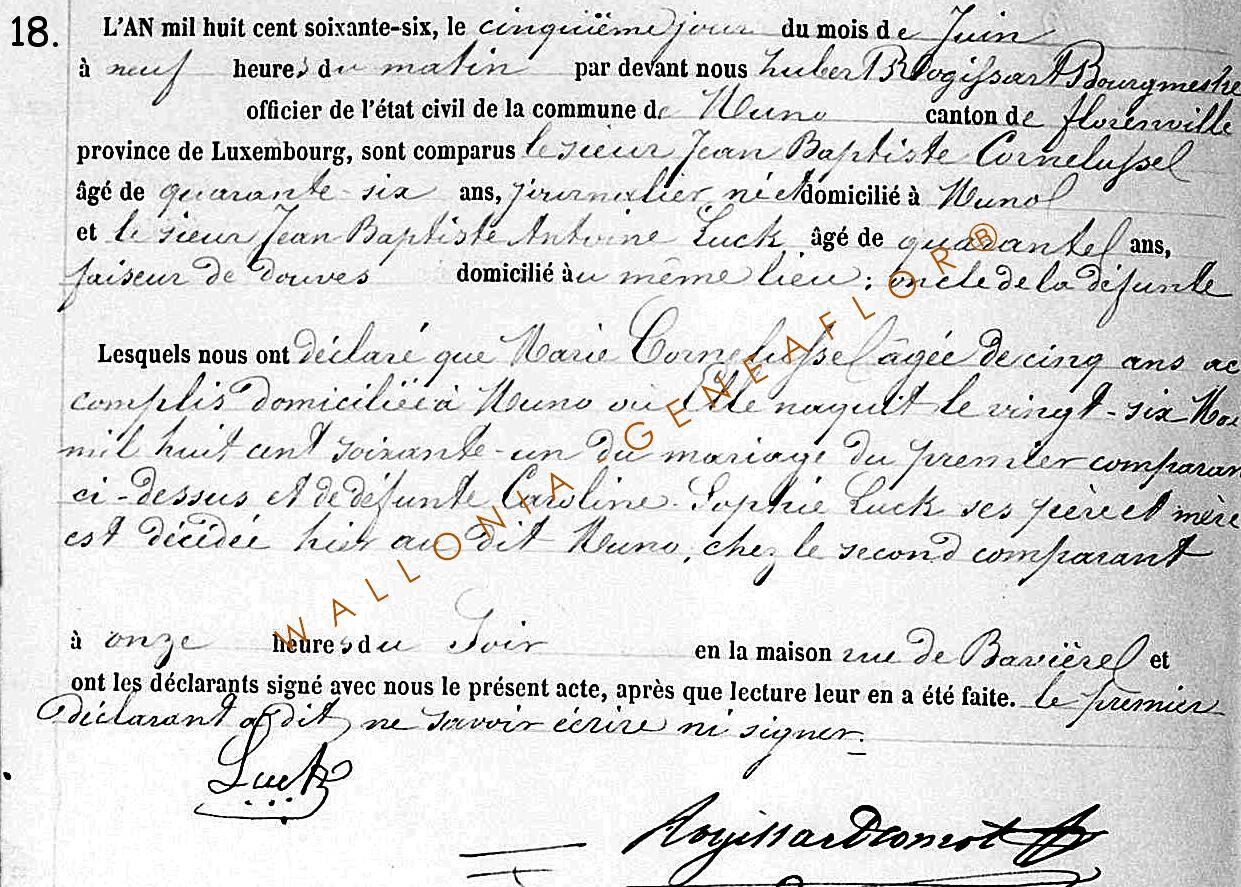 18. L'AN mil huit cent soixante-six, le cinquième jour du mois de Juin
à neuf heures du matin par devant nous hubert Rogissart Bourgmestre
officier de l'état civil de la commune de Muno canton de florenville
province de Luxembourg, sont comparus le sieur Jean Baptiste Cornelussel
âgé de quarante-six ans, journalier né et domicilié à Muno
et le sieur Jean Baptiste Antoine Luck âgé de quarante ans,
faiseur de douves domicilié au même lieu; oncle de la défunte
Lesquels nous ont déclaré que Marie Cornelussel âgée de cinq ans ac
complis domiciliée à Muno où Elle naquit le vingt-six Mai
mil huit cent soixante-un du mariage du premier comparan
ci-dessus et de défunte Caroline Sophie Luck ses père et mère
est décédée hier au dit Muno, chez le second comparant
à onze heures du Soir en la maison rue de Bavière et
ont les déclarants signé avec nous le présent acte, après que lecture leur en a été faite. le premier
déclarant a dit ne savoir écrire ni signer.
Luck
Rogissart
WALLONIA-GENEAFLOR®